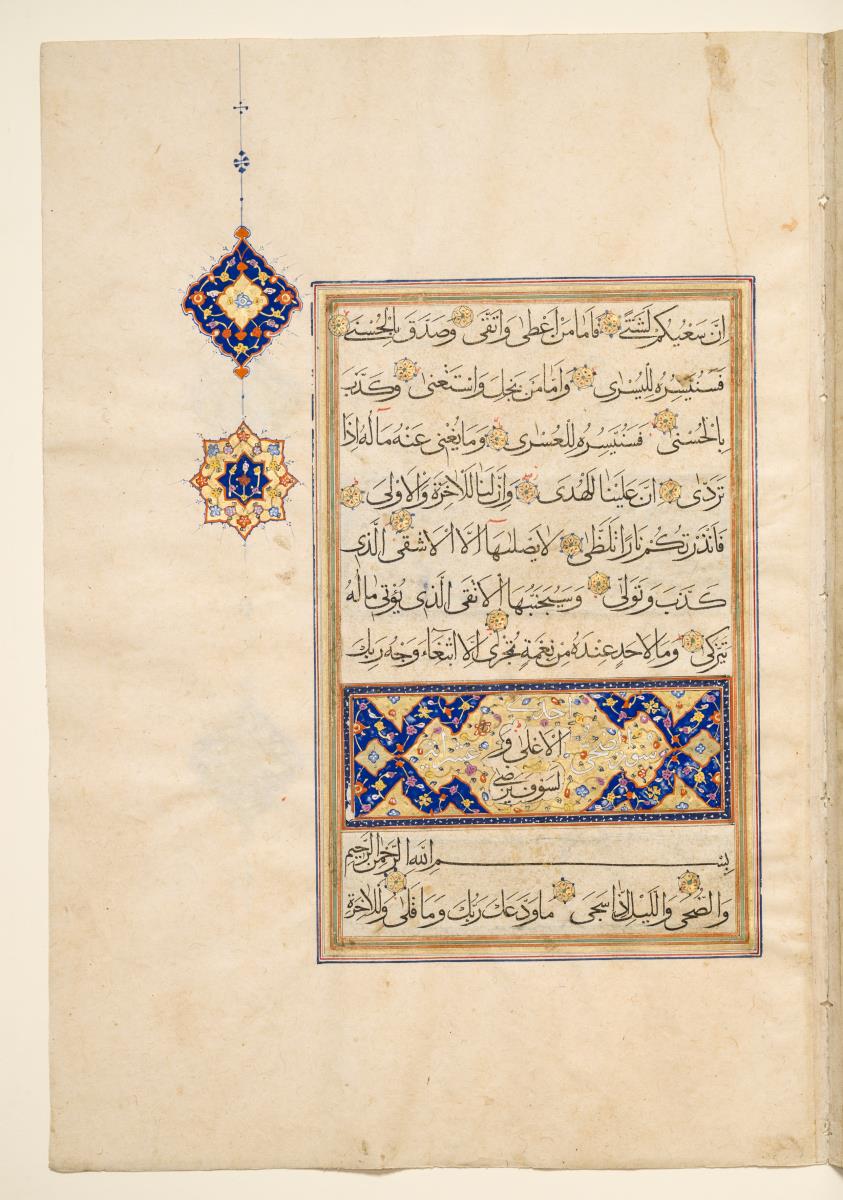 اِنَّ سَعْيَكُمْ لَشَتّٰى فَاَمَّا مَنْ اَعْطٰى وَاتَّقٰى وَصَدَّقَ بِالْحُسْنٰى
فَسَنُيَسِّرُهُ لِلْيُسْرٰى وَاَمَّا مَنْ بَخِلَ وَاسْتَغْنٰى وَكَذَّبَ
بِالْحُسْنٰى فَسَنُيَسِّرُهُ لِلْعُسْرٰى وَمَا يُغْنِى عَنْهُ مَالُهُ اِذَا
تَرَدّٰى اِنَّ عَلَيْنَا لَلْهُدٰى وَاِنَّ لَنَا لَلْاٰخِرَةَ وَالْاُولٰى
فَاَنْذَرْتُكُمْ نَارًا تَلَظّٰى لَا يَصْلٰىهَا اِلَّا الْاَشْقَى الَّذِى
كَذَّبَ وَتَوَلّٰى وَسَيُجَنَّبُهَا الْاَتْقَى الَّذِى يُؤْتِى مَالَهُ
يَتَزَكّٰى وَمَا لِاَحَدٍ عِنْدَهُ مِنْ نِعْمَةٍ تُجْزٰى اِلَّا ابْتِغَاءَ وَجْهِ رَبِّهِ
الْاَعْلٰى وَ
لَسَوْفَ يَرْضٰى
بِسْمِ اللّٰهِ الرَّحْمٰنِ الرَّحِيمِ
وَالضُّحٰى وَاللَّيْلِ اِذَا سَجٰى مَا وَدَّعَكَ رَبُّكَ وَمَا قَلٰى وَلَلْاٰخِرَةُ